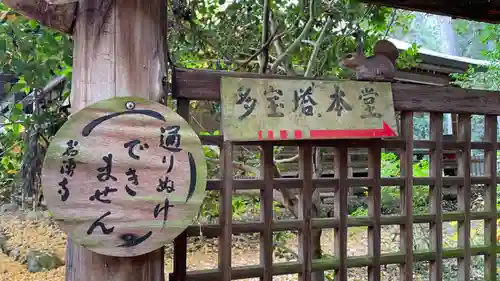 通りぬけ
できません
お寺
多宝塔本堂